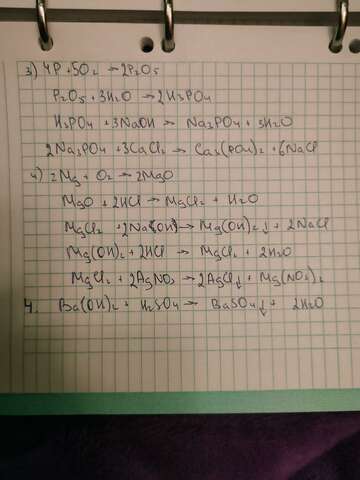 3) 4P + 5O2 → 2P2O5
P2O5 + 3H2O → 2H3PO4
H3PO4 + 3NaOH → Na3PO4 + 3H2O
2Na3PO4 + 3CaCl2 → Ca3(PO4)2 + 6NaCl
4) 2Mg + O2 → 2MgO
MgO + 2HCl → MgCl2 + H2O
MgCl2 + 2Na(OH) → Mg(OH)2↓ + 2NaCl
Mg(OH)2 + 2HCl → MgCl2 + 2H2O
MgCl2 + 2AgNO3 → 2AgCl↓ + Mg(NO3)2
4. Ba(OH)2 + H2SO4 → BaSO4↓ + 2H2O